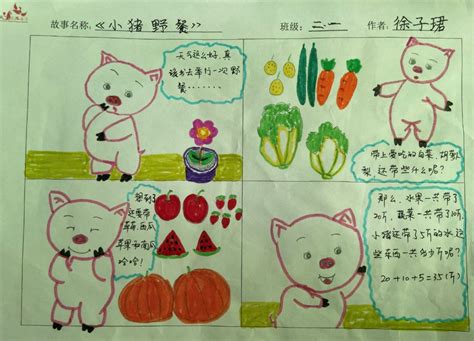 故事名称:《小猪野餐》 班级: 二.一 作者: 徐子珺
天气这么好,真
该出去举行一次野
餐……
带上爱吃的白菜、胡萝
还带些什么呢?
想到了
还要带
草莓、西瓜
苹果和南瓜
哈哈!
那么,水果一共带了
20斤,蔬菜一共带了10斤
小猪还带了5斤的水,这
些东西一共多少斤呢?
20+10+5=35(斤)